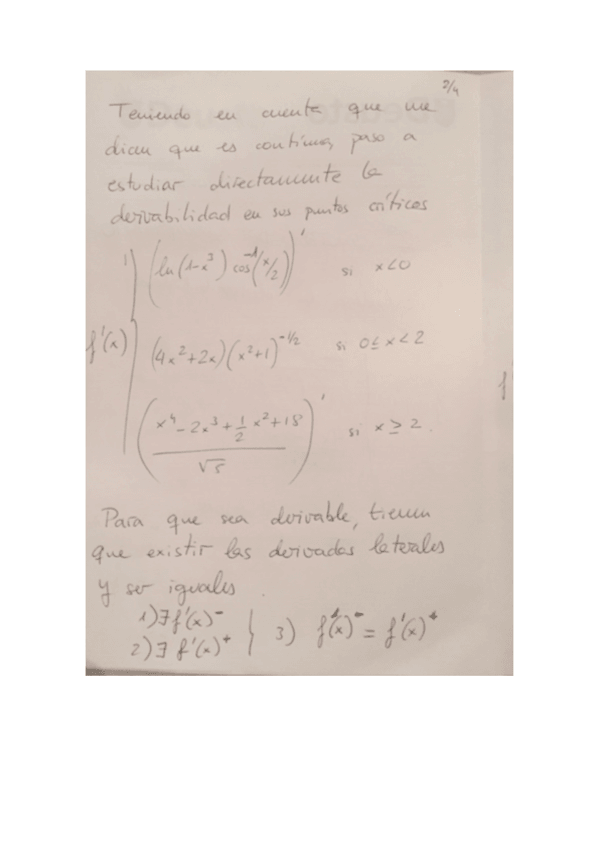 2/4
Teniendo en cuenta que me
dicen que es continua, paso a
estudiar directamente la
derivabilidad en sus puntos críticos
(ln(1-x³) cos⁻¹(x/2))' si x<0
f'(x) (4x²+2x)(x²+1)^(-1/2) si 0≤x<2
((x⁴-2x³+1/2 x²+18)/√5)' si x≥2.
Para que sea derivable, tienen
que existir las derivadas laterales
y ser iguales.
1) ∃ f'(x)⁻
2) ∃ f'(x)⁺ } 3) f'(x)⁻ = f'(x)⁺